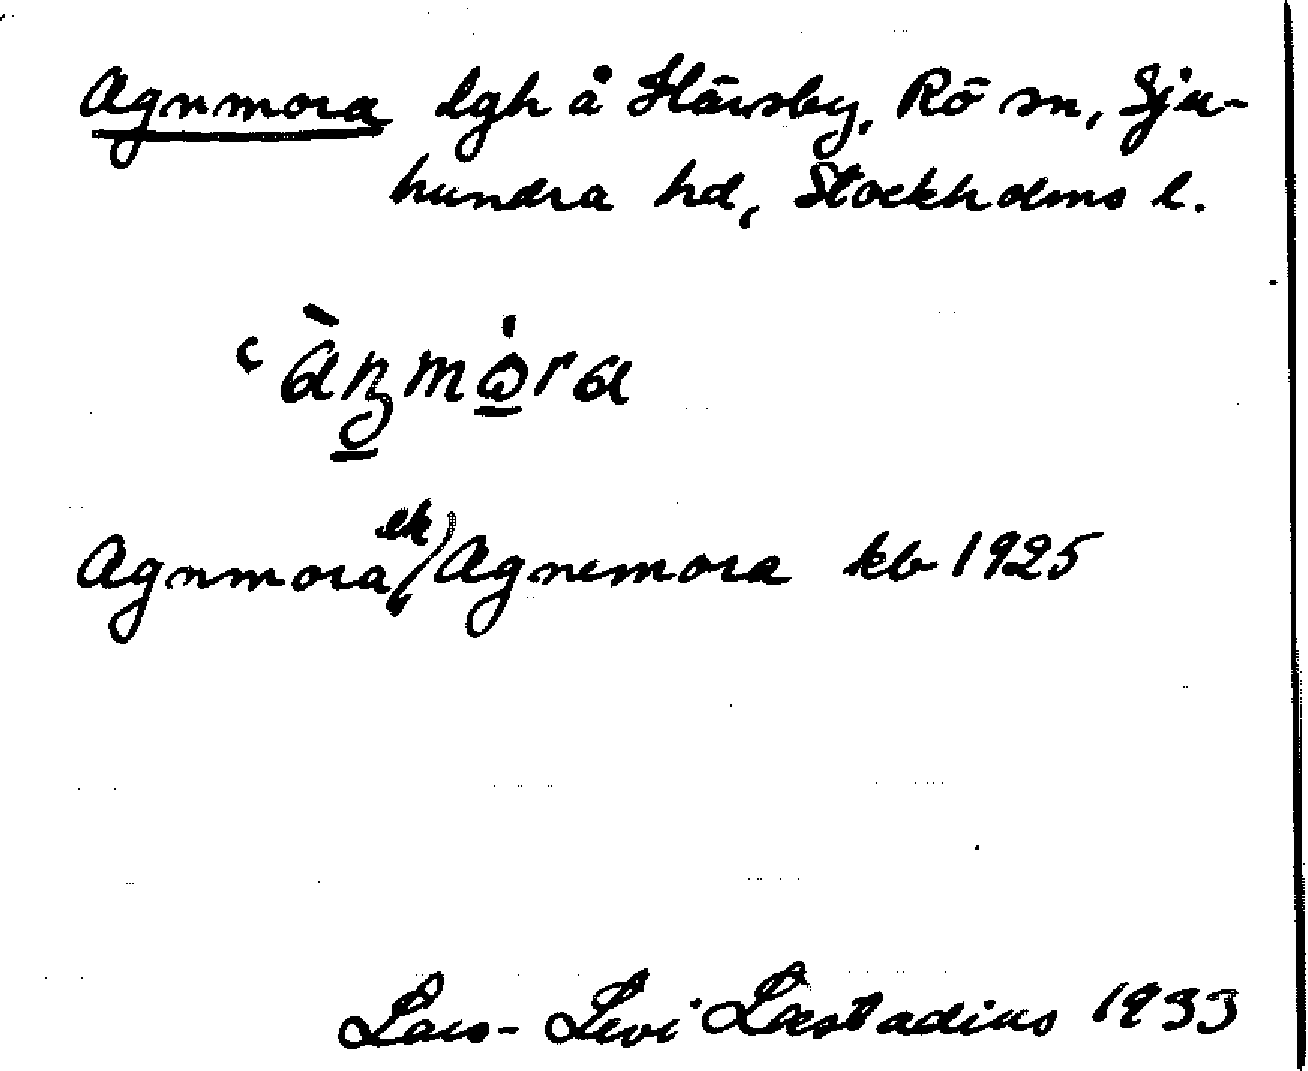 Agnmora lgh å Härsby, Rö sn, Sju-
hundra hd, Stockholms l.
Agnmora ek, Agnemora kb 1925
Lars-Levi Læstadius 1933